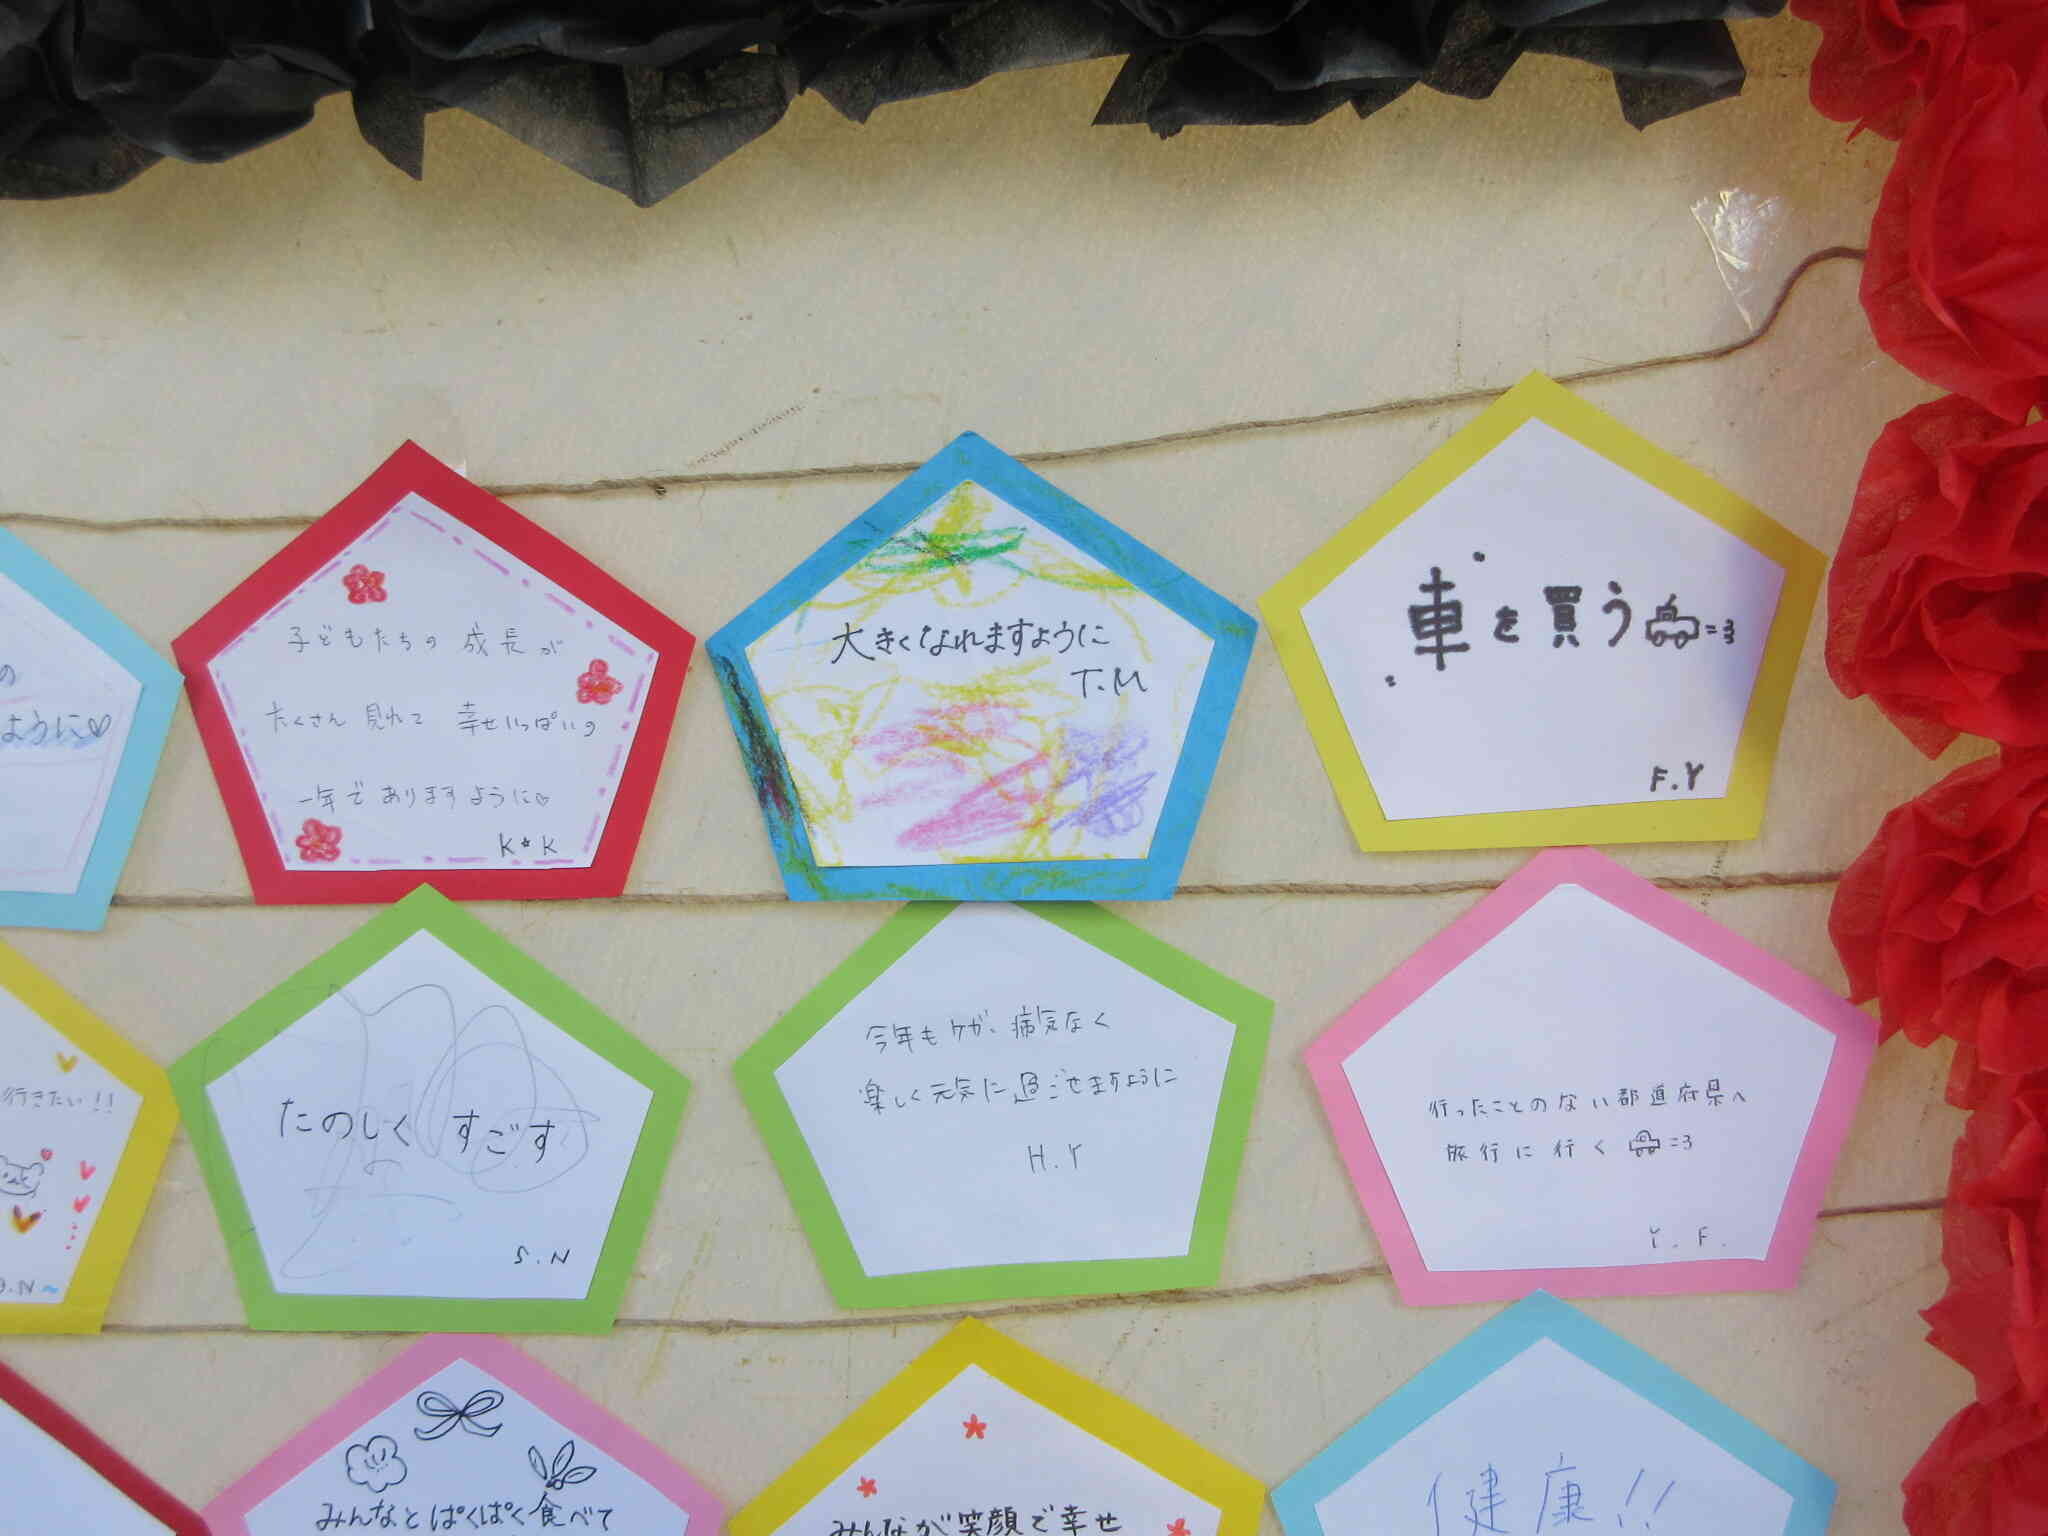 ように♡
子どもたちの 成長が
たくさん 見れて 幸せいっぱいの
一年で ありますように♡
K☆K
大きくなれますように
T.M
車を買う =3
F.Y
行きたい!!
たのしく すごす
S.N
今年もケガ、病気なく
楽しく元気に過ごせますように
H.Y
行ったことのない都道府県へ
旅行に行く =3
Y.F.
みんなとぱくぱく食べて
みんなが笑顔で幸せ
健康!!